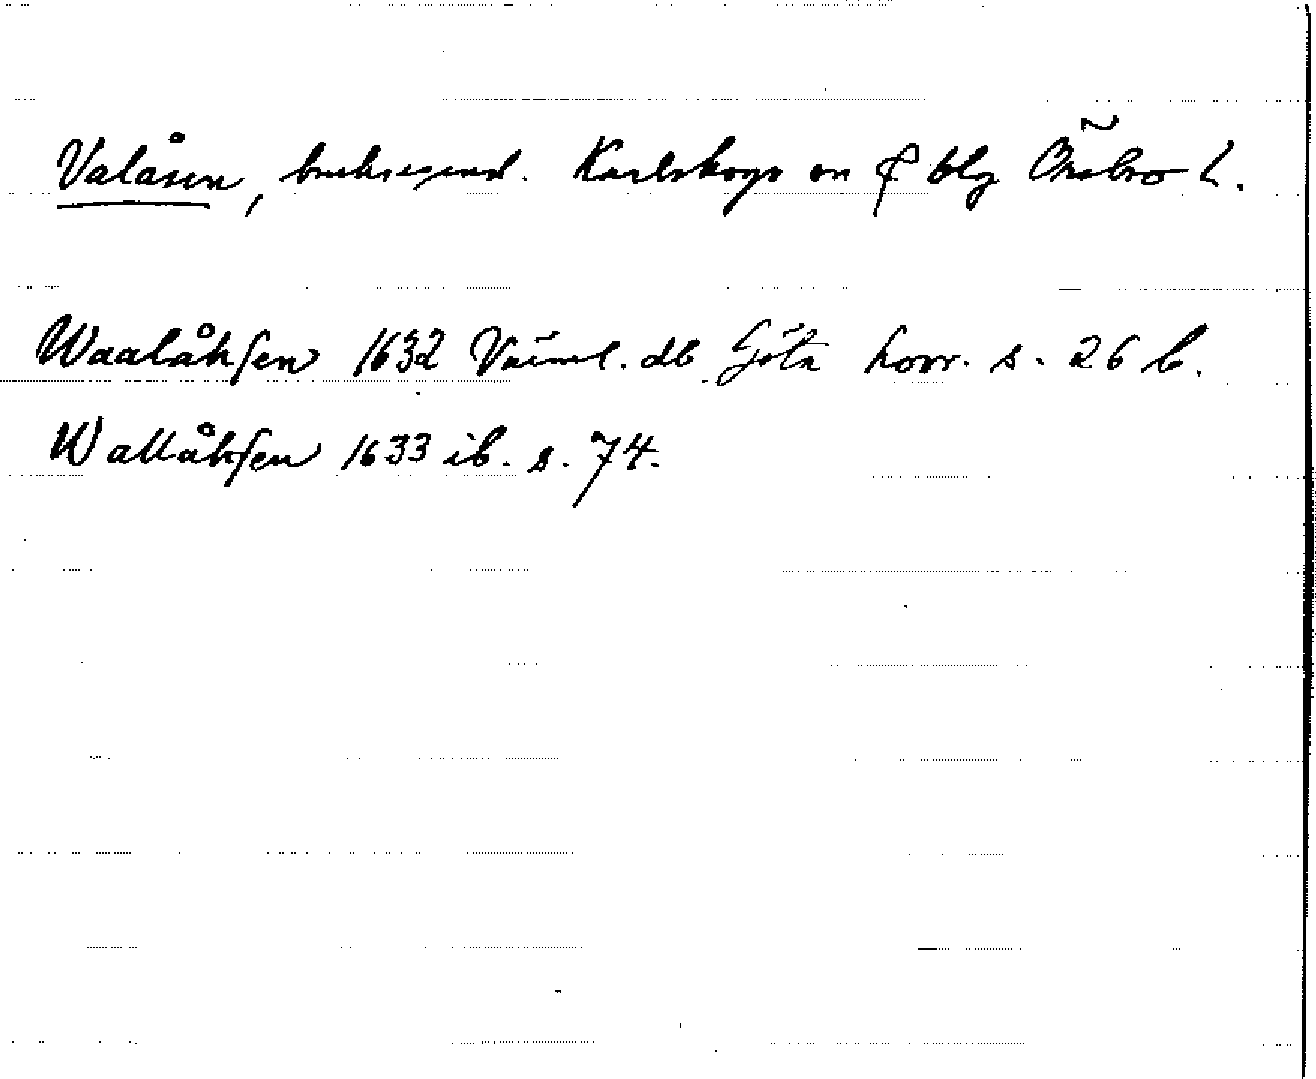 Valåsen, bruksegend. Karlskoga sn & blg Örebro l.
Waalåhsen 1632 Värml. db Göta hovr. s. 26 b.
Wallåhsen 1633 ib. s. 74.